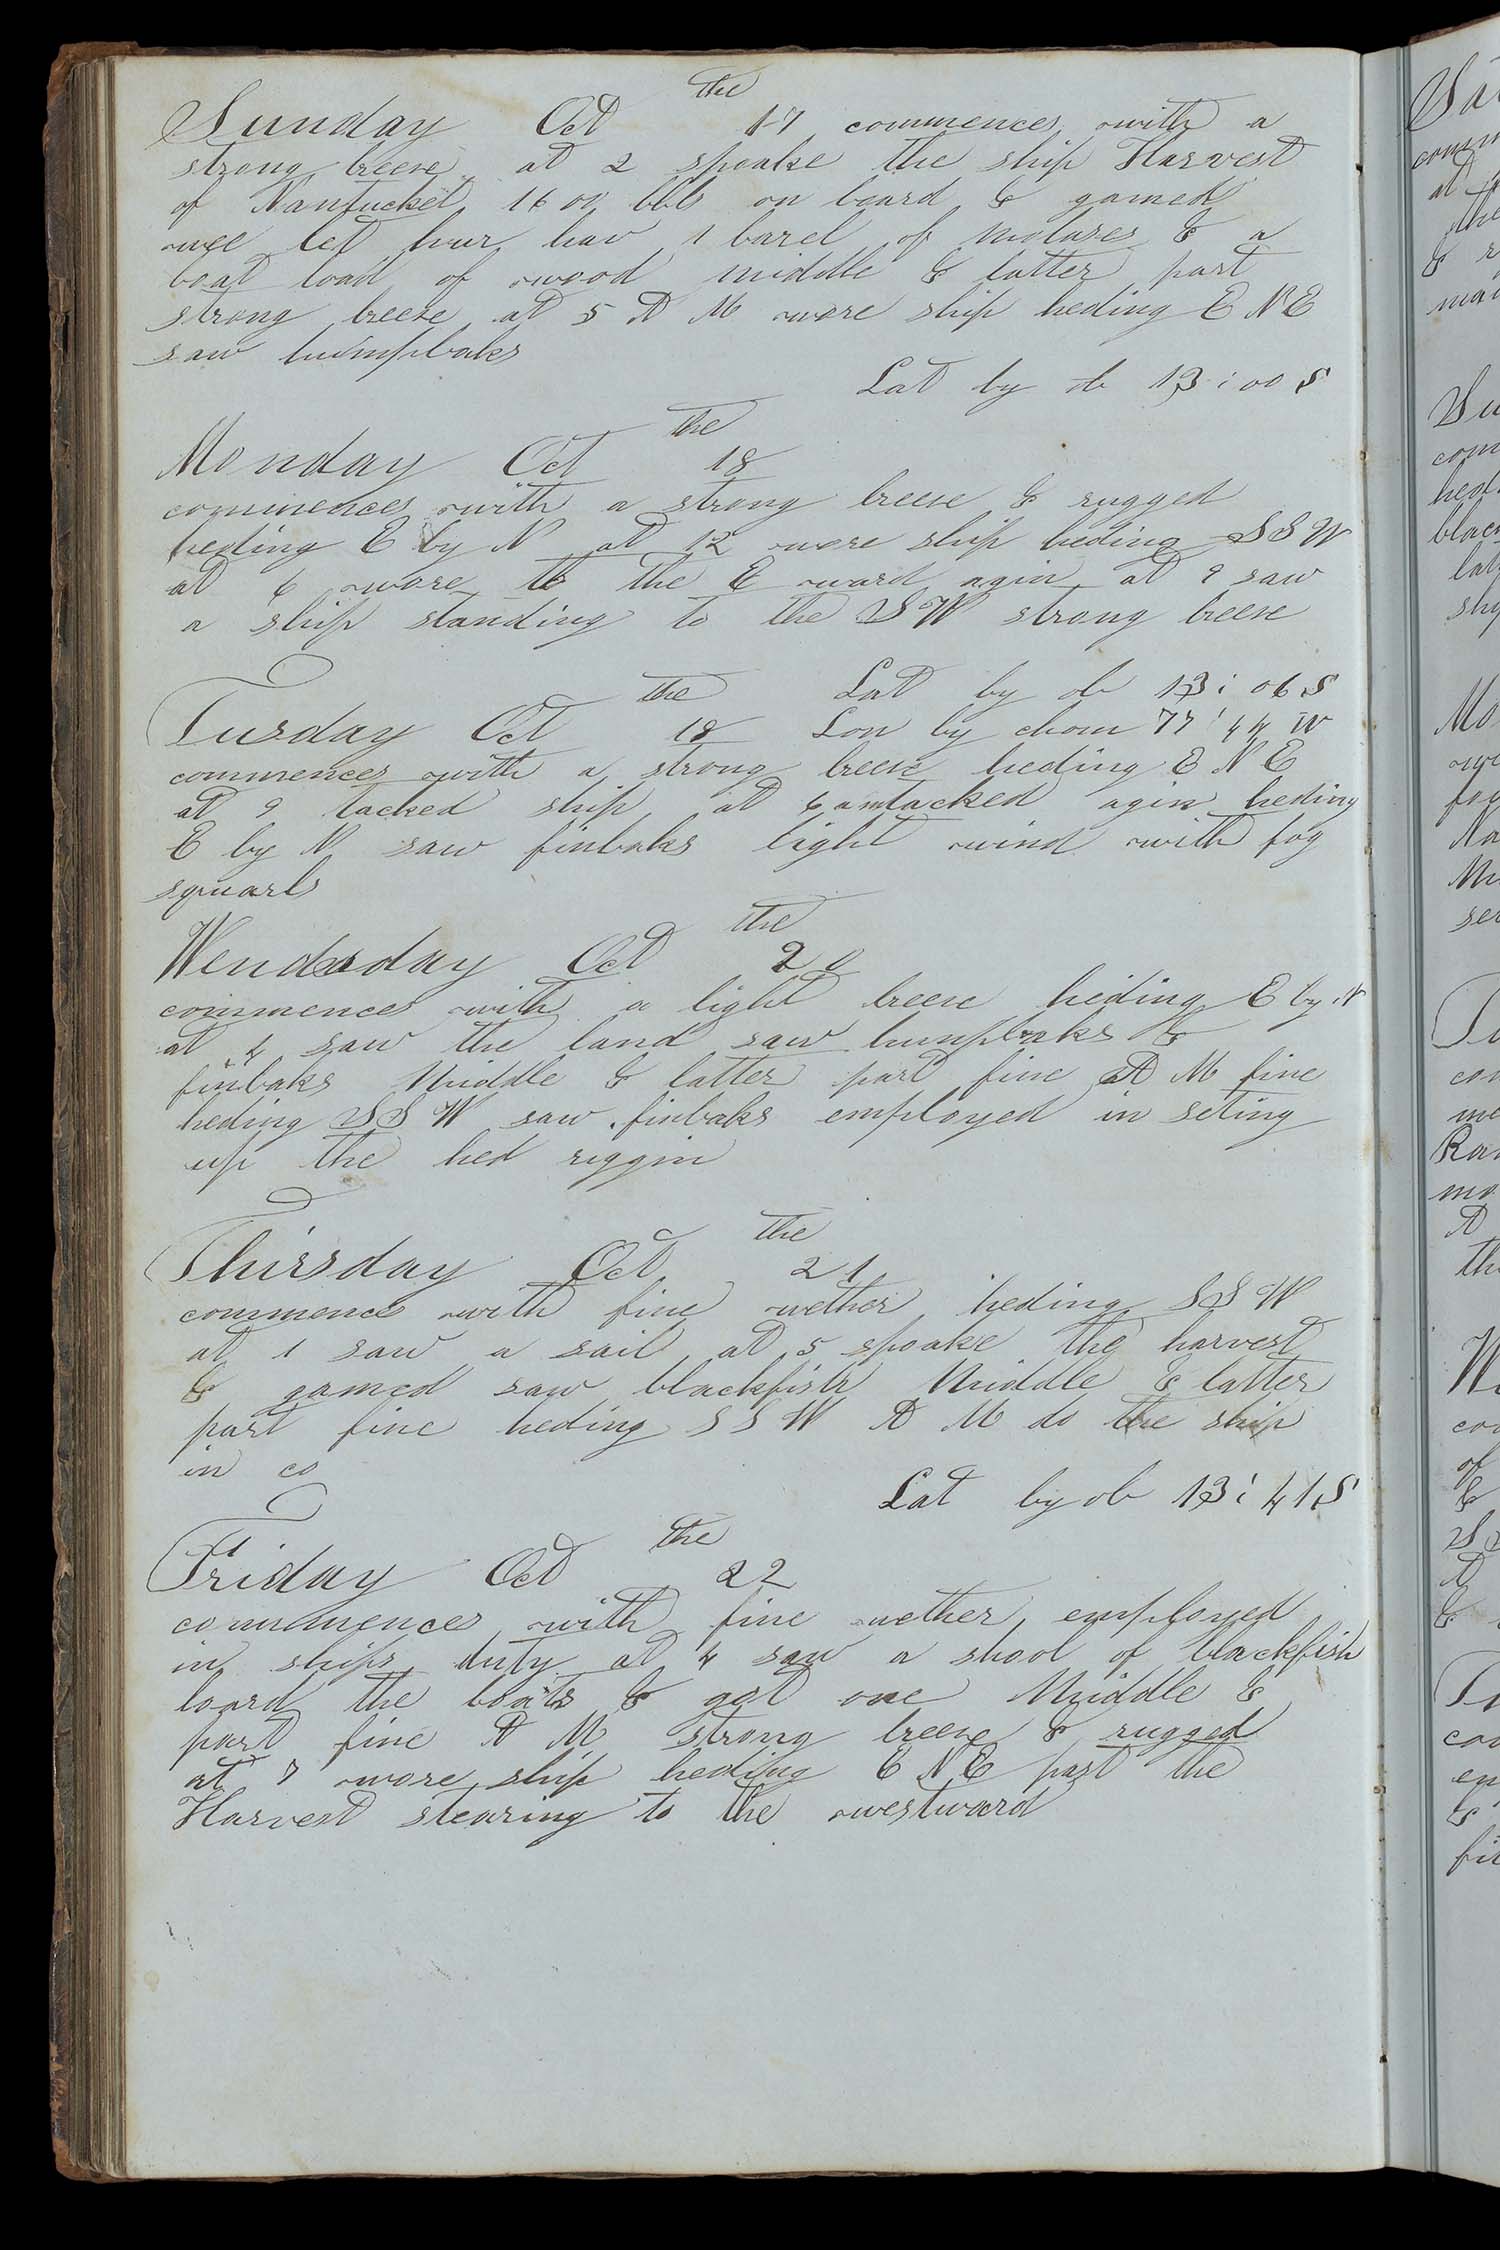 Sunday Oct the 17 commences with a
strong breese at 2 spoake the ship Harvest
of Nantucket 1600 bbls on board & gamed
wee let hur hav 1 barel of molases & a
boat load of wood middle & latter part
strong breeze at 5 A M wore ship heding E N E
saw humpbaks
Lat by ob 13 : 00 S
Monday Oct the 18
commences with a strong breese & rugged
heding E by N at 12 wore ship heding SSW
at 6 wore to the E ward agin at 9 saw
a ship standing to the SW strong breese
Lat by ob 13 : 06 S
Tusday Oct the 18 Lon by chom 77 : 44 W
commences with a strong breese heding E N E
at 9 tacked ship at 6 am tacked agin heding
E by N saw finbaks light wind with fog
squarls
Wendsday Oct the 20
commences with a light breese heding E by N
at 4 saw the land saw humpbaks &
finbaks Middle & latter part fine A M fine
heding SSW saw finbaks employed in seting
up the hed riggin
Thirsday Oct the 21
commence with fine wether heding SSW
at 1 saw a sail at 5 spoake the harvest
& gamed saw blackfish Middle & latter
part fine heding SSW A M do the ship
in co
Lat by ob 13 : 41 S
Friday Oct the 22
commences with fine wether employed
in ships duty at 4 saw a shool of blackfish
loard the boats & got one Middle &
part fine A M strong breese & rugged
at 7 wore ship heding E N E past the
Harvest stearing to the westward